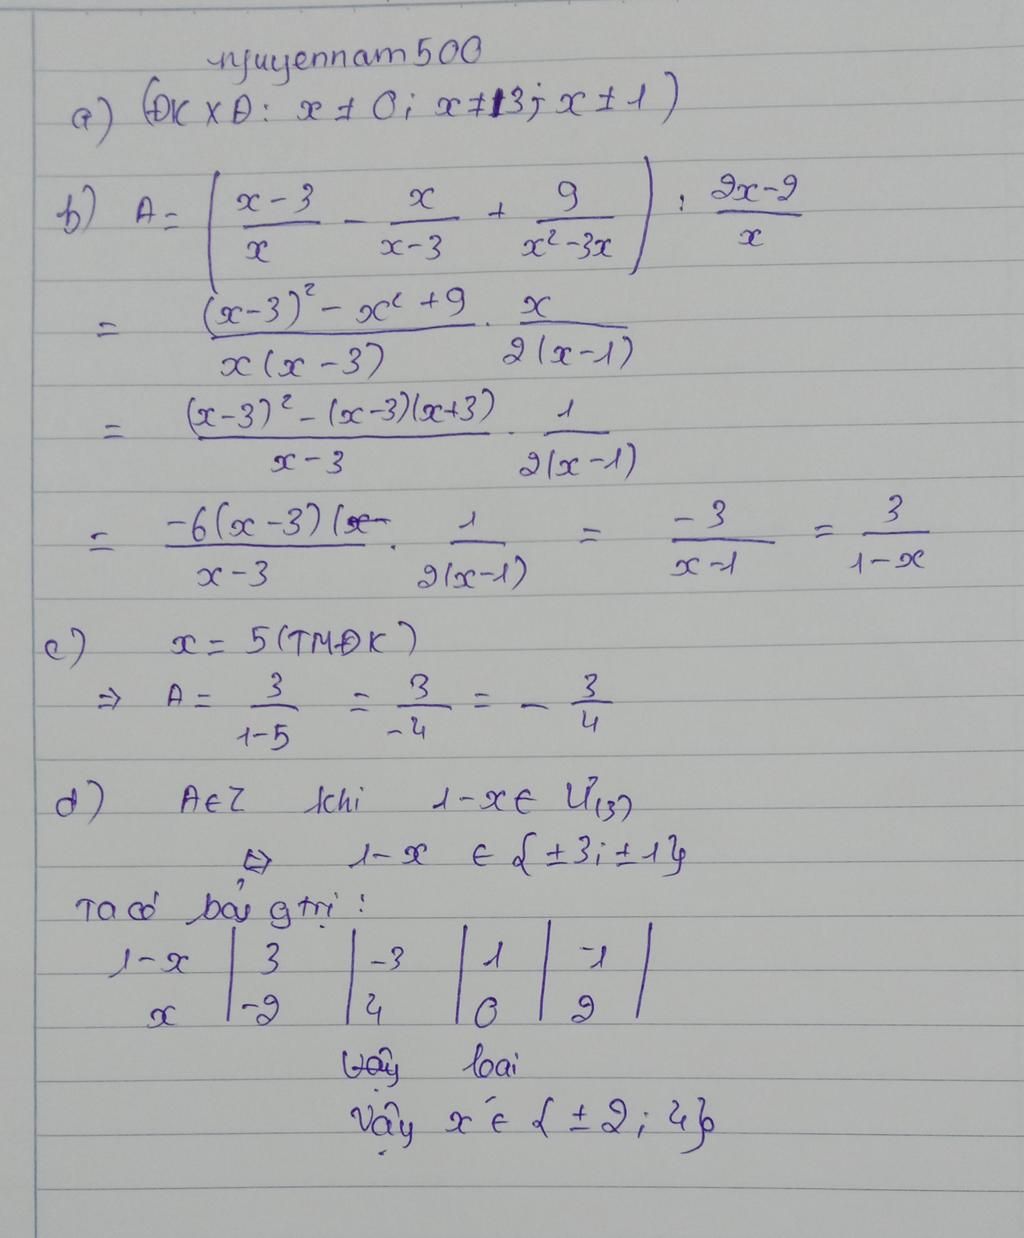 nguyennam500
a) (ĐKXĐ: x ≠ 0; x ≠ 3; x ≠ 1)
b) A = ( (x-3)/x - x/(x-3) + 9/(x²-3x) ) : (2x-2)/x
= ((x-3)² - x² + 9)/(x(x-3)) . x/(2(x-1))
= ((x-3)² - (x-3)(x+3))/(x-3) . 1/(2(x-1))
= -6(x-3)/(x-3) . 1/(2(x-1)) = -3/(x-1) = 3/(1-x)
c) x = 5 (TMĐK)
⇒ A = 3/(1-5) = 3/-4 = - 3/4
d) A∈Z khi 1-x ∈ Ư(3)
⇔ 1-x ∈ {±3; ±1}
Ta có bảg trị:
1-x | 3 | -3 | 1 | -1 |
x | -2 | 4 | 0 | 2 |
loại
Vậy x ∈ {±2; 4}